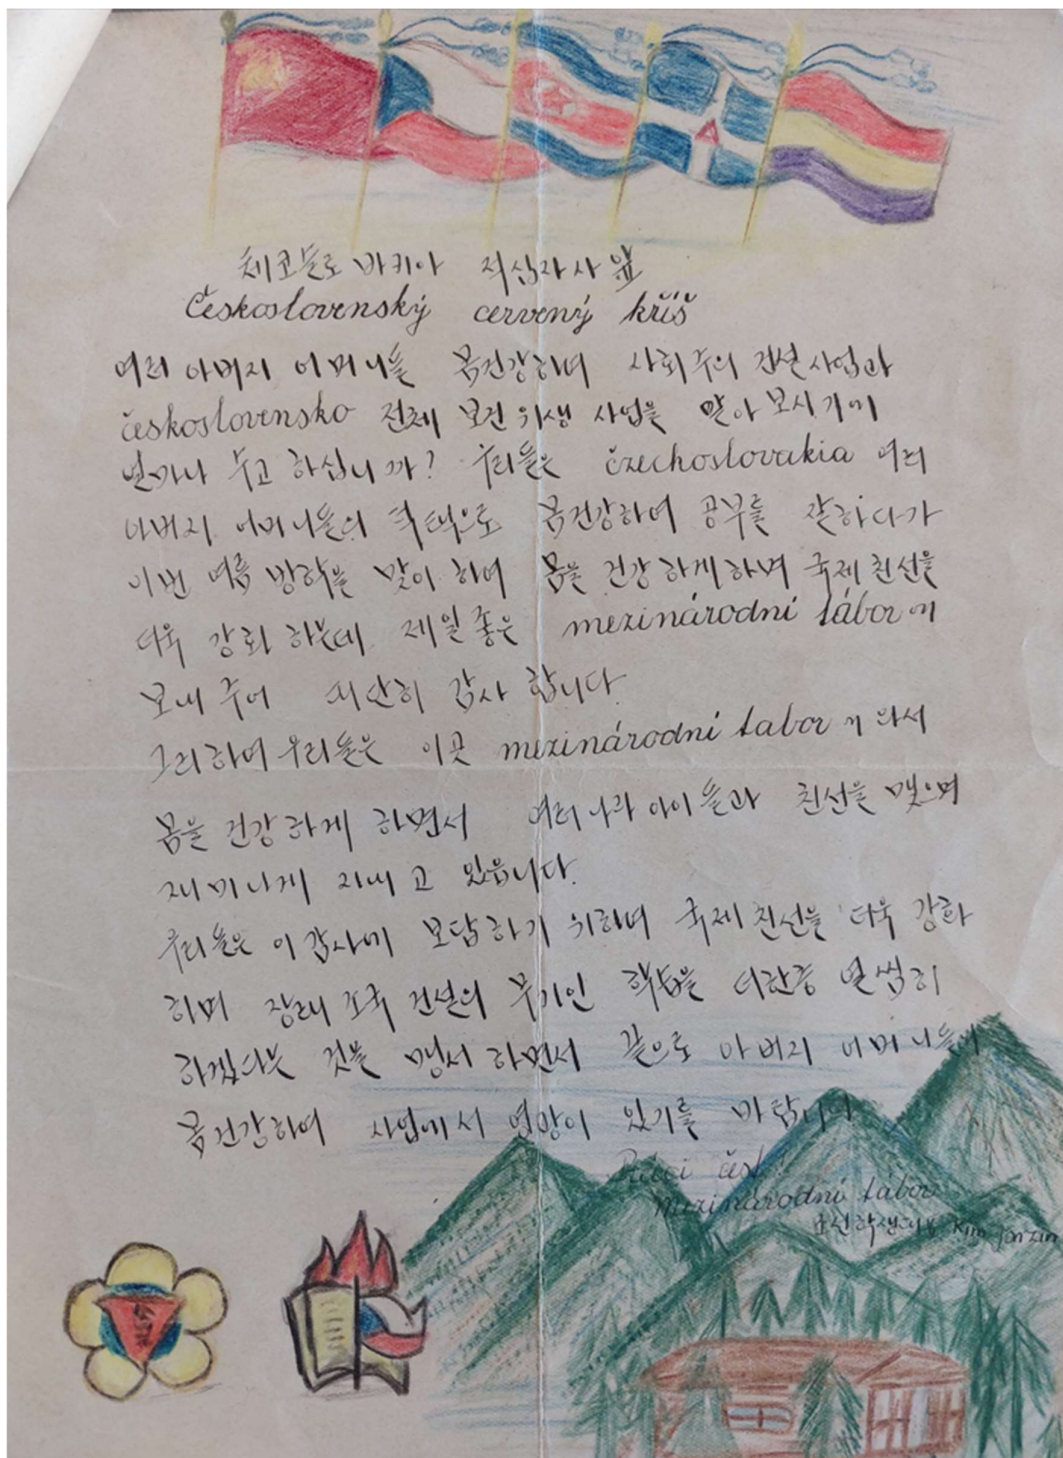 체코슬로바키아 적십자사 앞
Československý cervený kříš
여러 아버지 어머니들 몸건강하며 사회주의 건설사업과
československo 전체 보건 위생 사업을 맡아 보시기에
얼마나 수고 하십니까? 우리들은 čzechoslovakia 여러
아버지 어머니들의 혁택으로 몸건강하며 공부를 잘하다가
이번 여름 방학을 맞이 하여 몸을 건강 하게하며 국제 친선을
더욱 강화 하는데 제일 좋은 mezinárodní tábor에
보내 주어 대단히 감사 합니다.
그리하여 우리들은 이곳 mezinárodní tabor에 와서
몸을 건강 하게 하면서 여러나라 아이들과 친선을 맺으며
재미나게 지내고 있읍니다.
우리들은 이 감사에 보답하기 위하여 국제 친선을 더욱 강화
하며 장래 조국 건설의 무기인 학습을 더한층 열씸히
하겠다는 것을 맹서 하면서 끝으로 아버지 어머니들께
몸건강하여 사업에서 영광이 있기를 바랍니다
čest
Mezinárodní tábor
조선학생대표 Kim jon zin